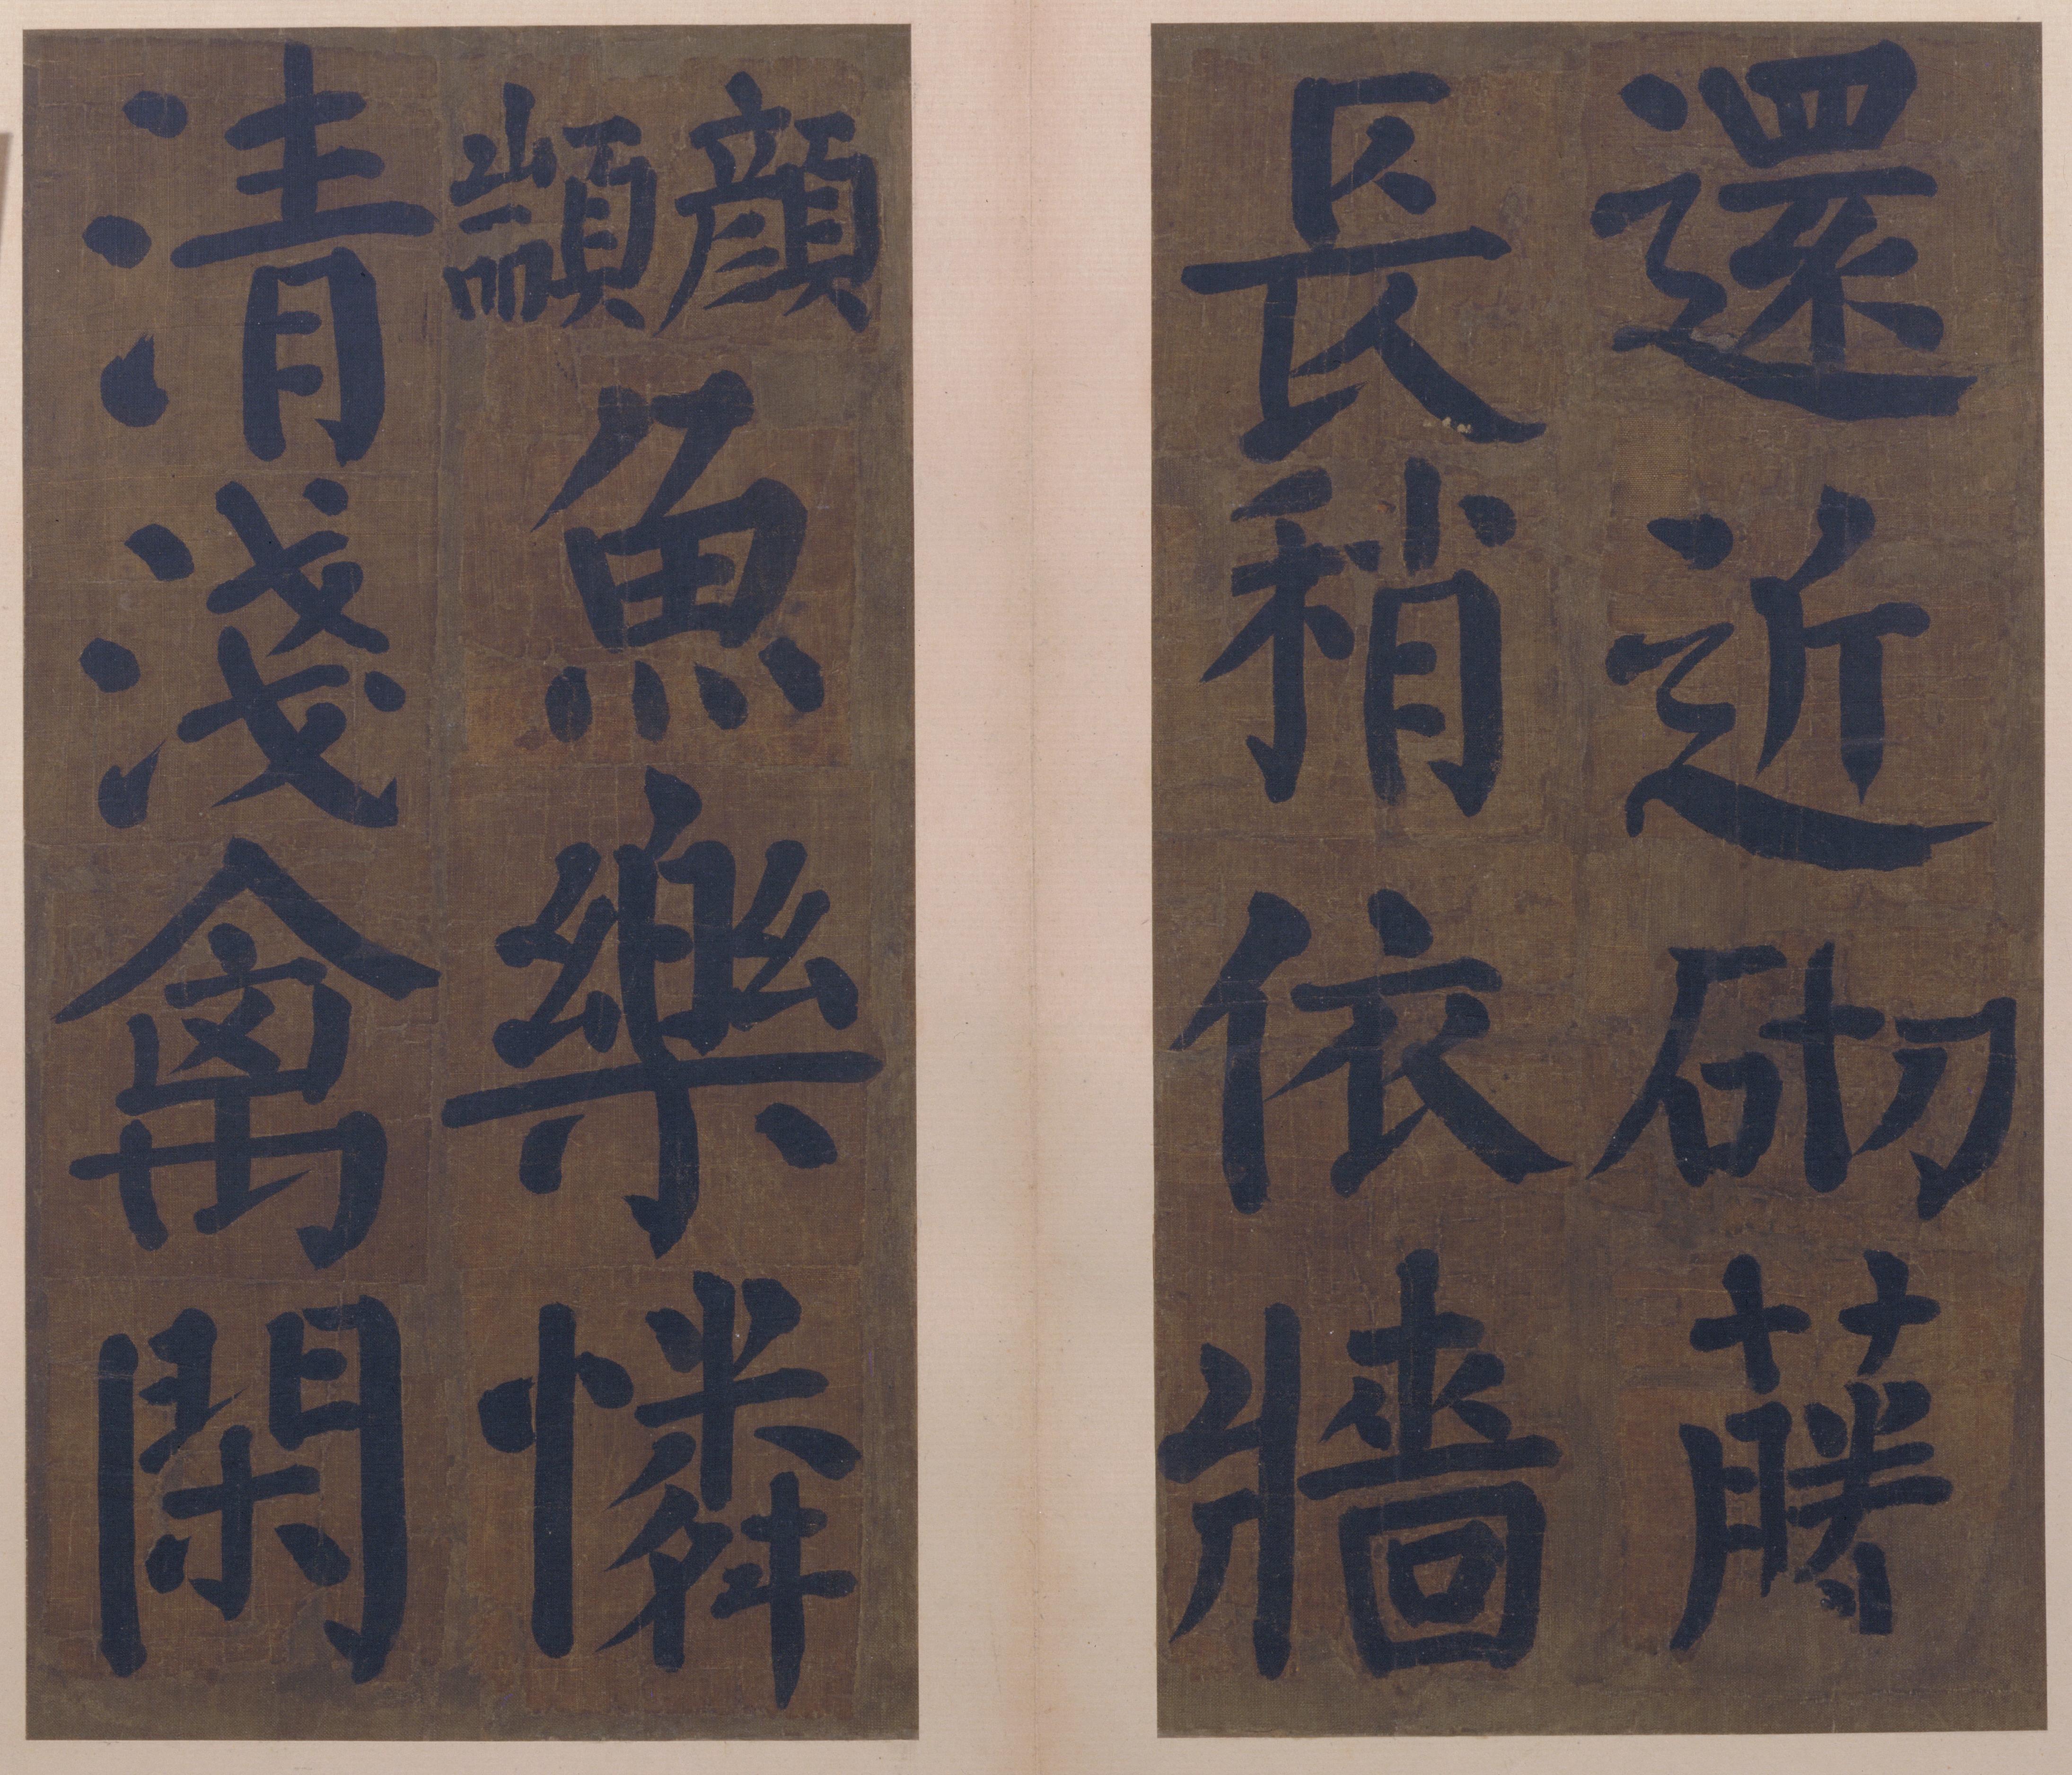 還近砌藤
長稍依牆
顔顓魚樂憐
清淺禽閑